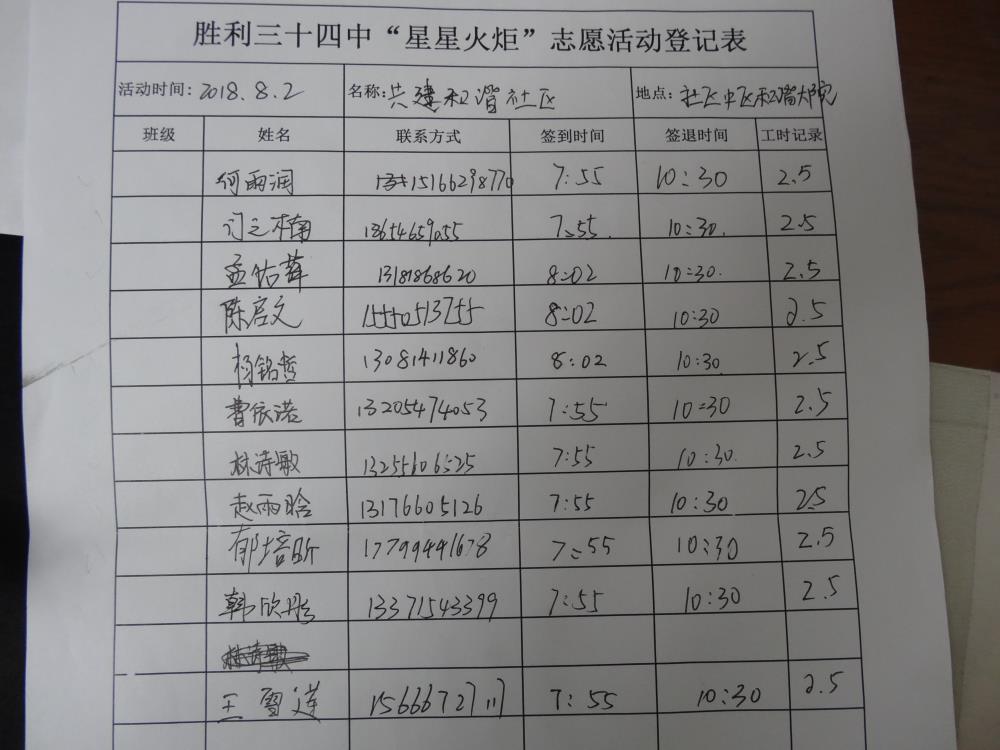 胜利三十四中“星星火炬”志愿活动登记表
活动时间: 2018.8.2 名称: 共建和谐社区 地点: 社区中区和谐大院
班级 姓名 联系方式 签到时间 签退时间 工时记录
何雨润 15166298770 7:55 10:30 2.5
门之楠 18654659055 7:55 10:30 2.5
孟佑葶 13181868620 8:02 10:30 2.5
陈启文 15550513755 8:02 10:30 2.5
杨铭哲 13081411860 8:02 10:30 2.5
曹依诺 13205474053 7:55 10:30 2.5
林诗敏 13255606525 7:55 10:30 2.5
赵雨晗 13176605126 7:55 10:30 2.5
郁培昕 17799441678 7:55 10:30 2.5
韩欣彤 13371543399 7:55 10:30 2.5
林诗敏
王雪莲 15666727117 7:55 10:30 2.5